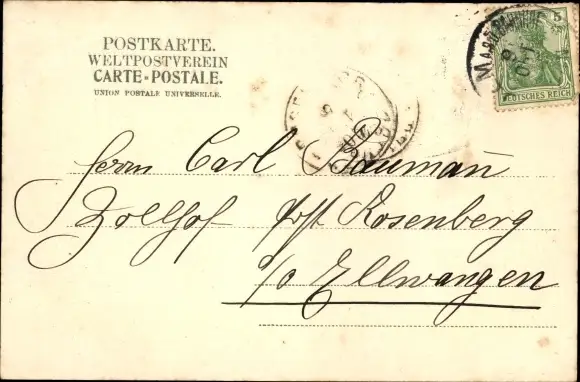 POSTKARTE.
WELTPOSTVEREIN
CARTE-POSTALE.
UNION POSTALE UNIVERSELLE.
5
DEUTSCHES REICH
Herrn Carl Baumañ
Zollhof Post Rosenberg
b/o Ellwangen